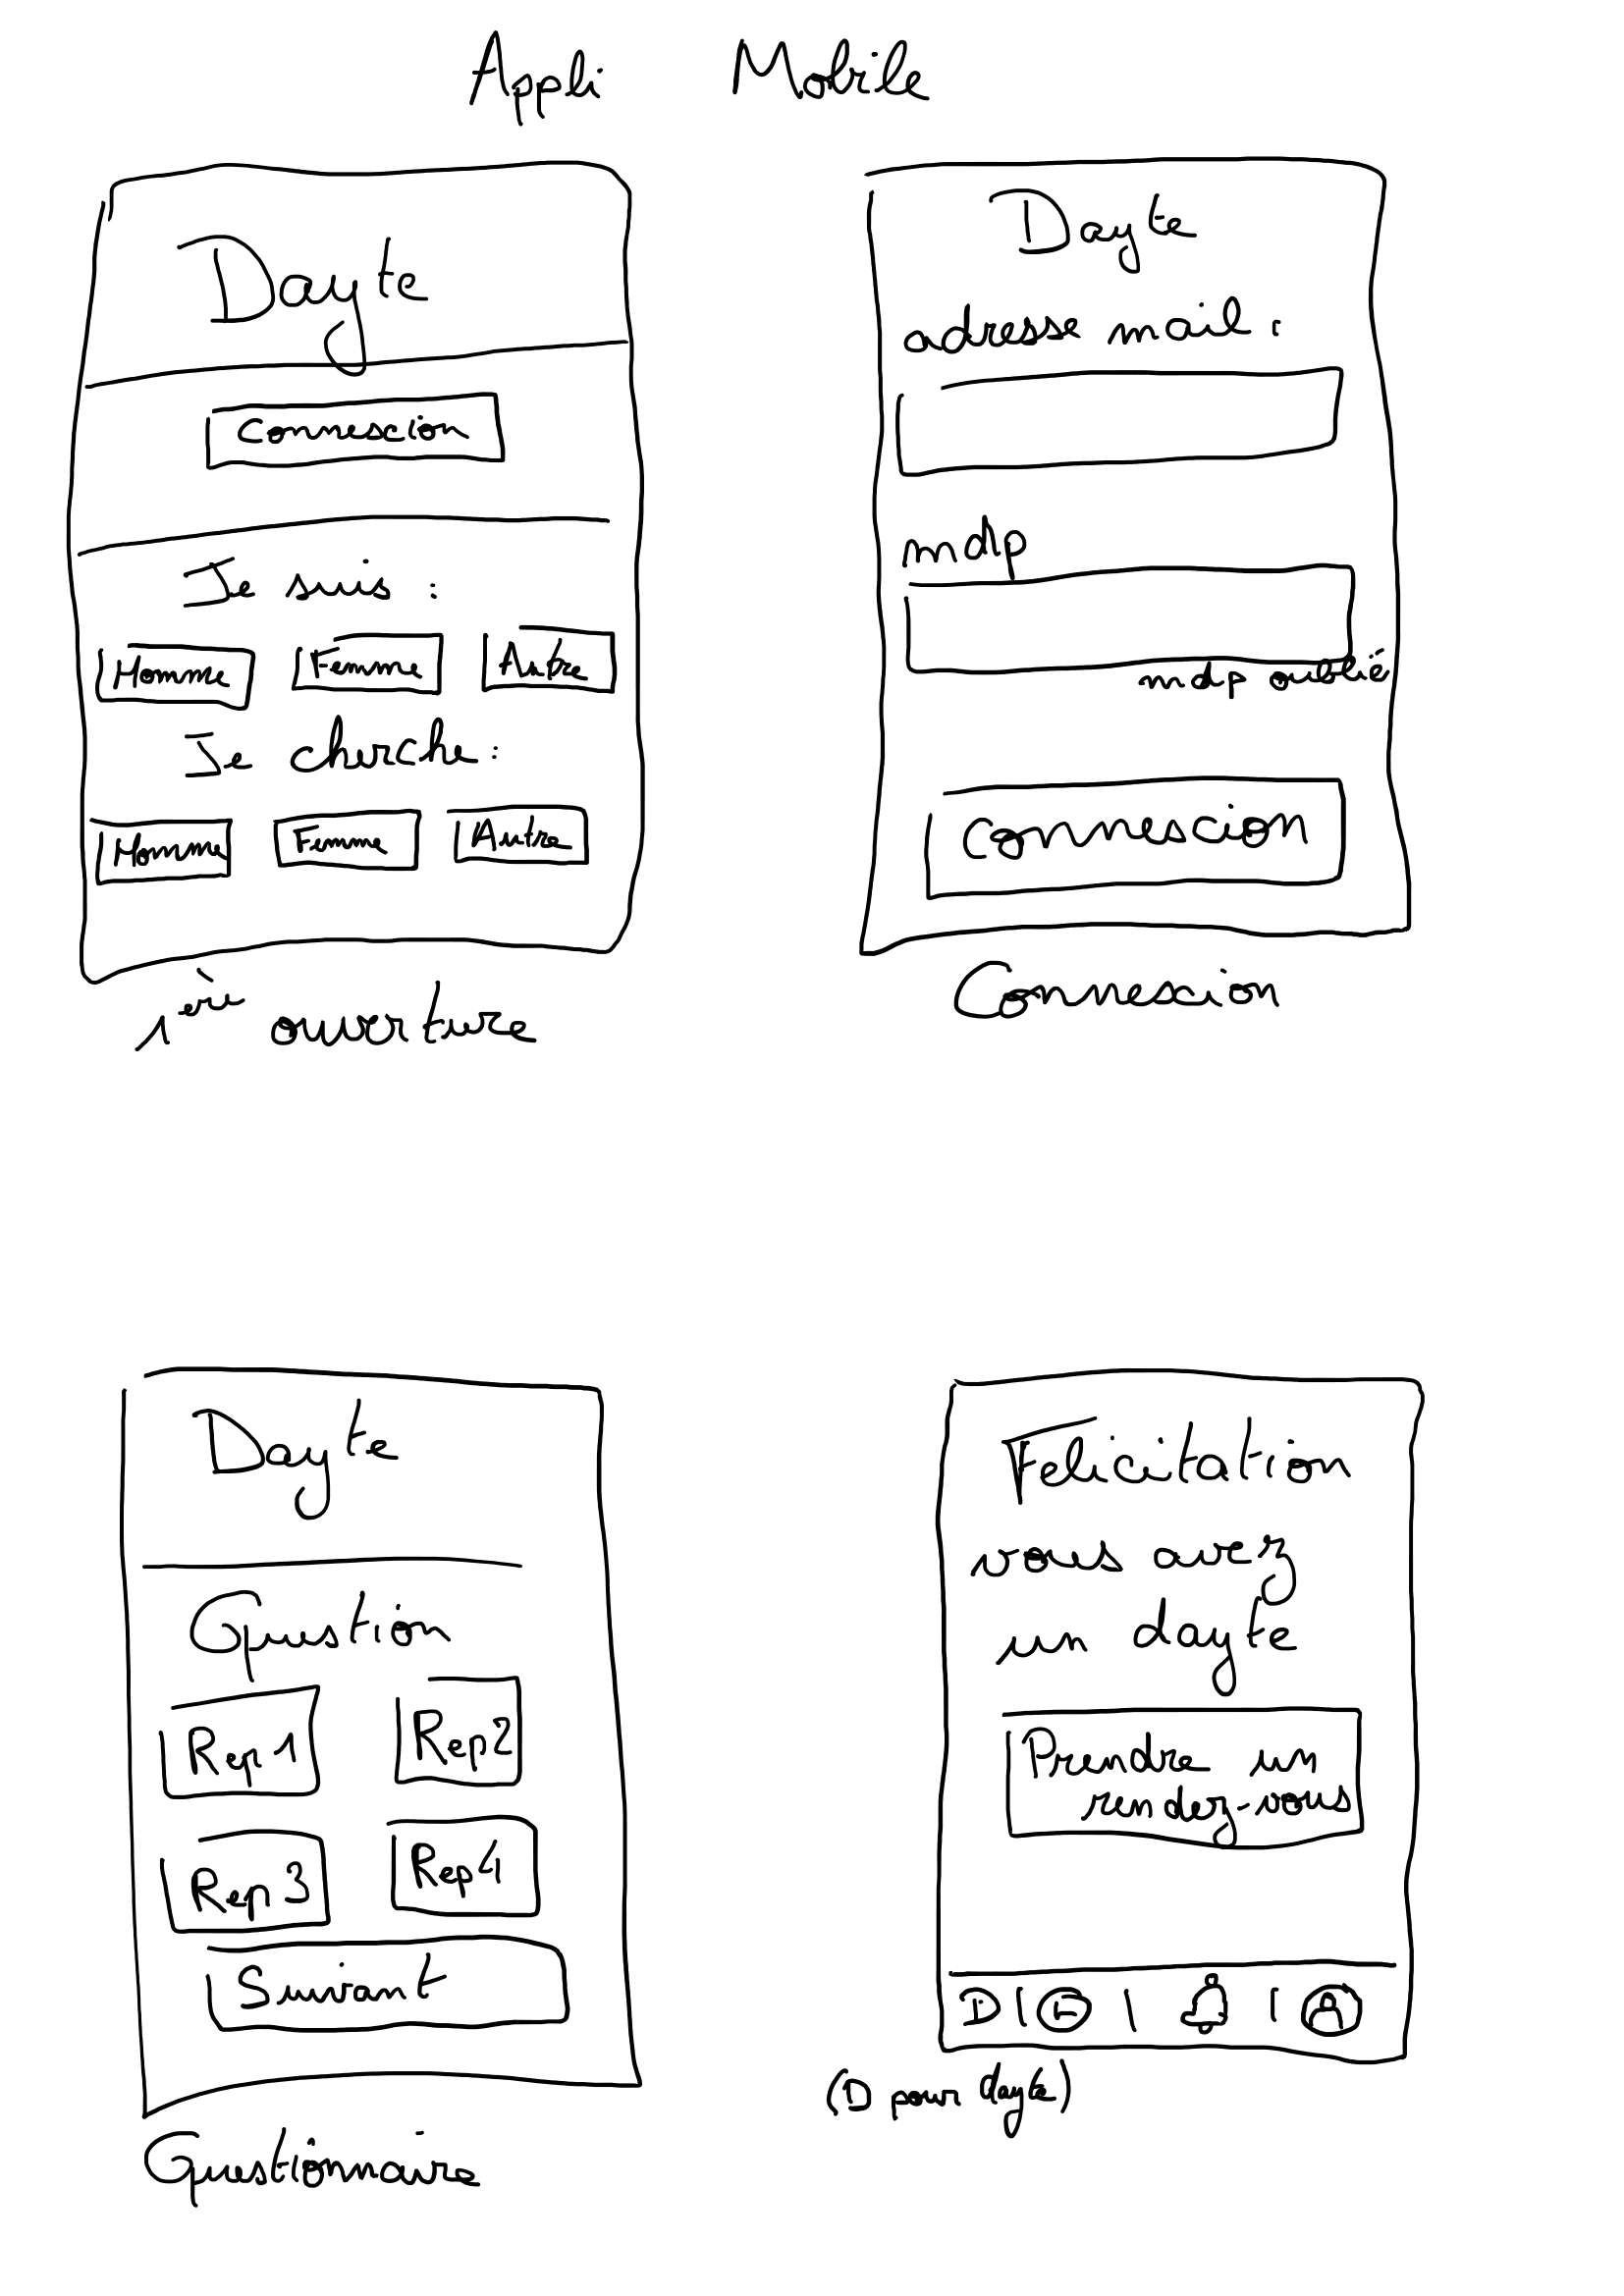 Appli Mobile
Dayte
Connexion
Je suis :
Homme Femme Autre
Je cherche :
Homme Femme Autre
1ère ouverture
Dayte
adresse mail :
mdp
mdp oublié
Connexion
Connexion
Dayte
Question
Rep1 Rep2
Rep3 Rep4
Suivant
Questionnaire
Felicitation
vous avez
un dayte
Prendre un
rendez-vous
D
(D pour dayte)